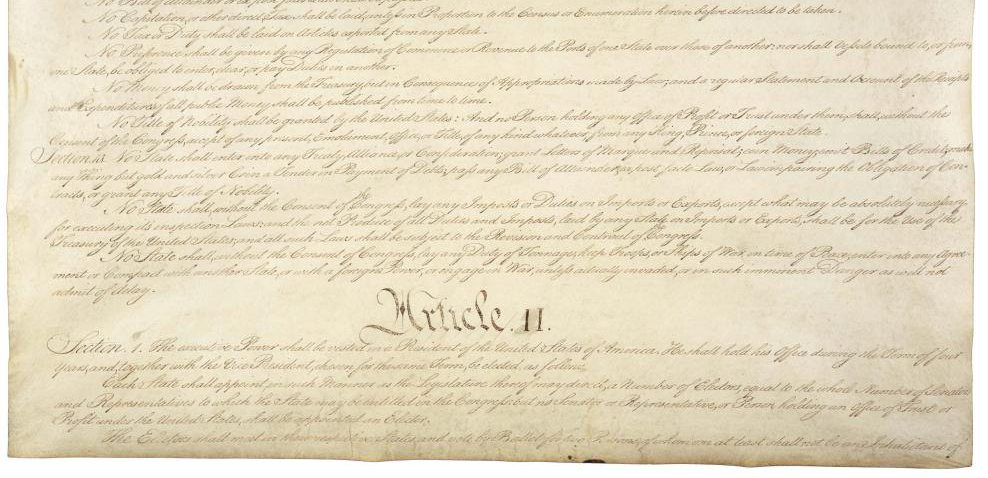 No Bill of Attainder or ex post facto Law shall be passed.
No Capitation, or other direct, Tax shall be laid, unless in Proportion to the Census or Enumeration herein before directed to be taken.
No Tax or Duty shall be laid on Articles exported from any State.
No Preference shall be given by any Regulation of Commerce or Revenue to the Ports of one State over those of another: nor shall Vessels bound to, or from,
one State, be obliged to enter, clear, or pay Duties in another.
No Money shall be drawn from the Treasury, but in Consequence of Appropriations made by Law; and a regular Statement and Account of the Receipts
and Expenditures of all public Money shall be published from time to time.
No Title of Nobility shall be granted by the United States: And no Person holding any Office of Profit or Trust under them, shall, without the
Consent of the Congress, accept of any present, Emolument, Office, or Title, of any kind whatever, from any King, Prince, or foreign State.
Section. 10. No State shall enter into any Treaty, Alliance, or Confederation; grant Letters of Marque and Reprisal; coin Money; emit Bills of Credit; make
any Thing but gold and silver Coin a Tender in Payment of Debts; pass any Bill of Attainder, ex post facto Law, or Law impairing the Obligation of Con-
tracts, or grant any Title of Nobility.
No State shall, without the Consent of the Congress, lay any Imposts or Duties on Imports or Exports, except what may be absolutely necessary
for executing it's inspection Laws: and the net Produce of all Duties and Imposts, laid by any State on Imports or Exports, shall be for the Use of the
Treasury of the United States; and all such Laws shall be subject to the Revision and Controul of the Congress.
No State shall, without the Consent of Congress, lay any Duty of Tonnage, keep Troops, or Ships of War in time of Peace, enter into any Agree-
ment or Compact with another State, or with a foreign Power, or engage in War, unless actually invaded, or in such imminent Danger as will not
admit of delay.
Article. II.
Section. 1. The executive Power shall be vested in a President of the United States of America. He shall hold his Office during the Term of four
Years, and, together with the Vice President, chosen for the same Term, be elected, as follows
Each State shall appoint, in such Manner as the Legislature thereof may direct, a Number of Electors, equal to the whole Number of Senators
and Representatives to which the State may be entitled in the Congress: but no Senator or Representative, or Person holding an Office of Trust or
Profit under the United States, shall be appointed an Elector.
The Electors shall meet in their respective States, and vote by Ballot for two Persons, of whom one at least shall not be an Inhabitant of